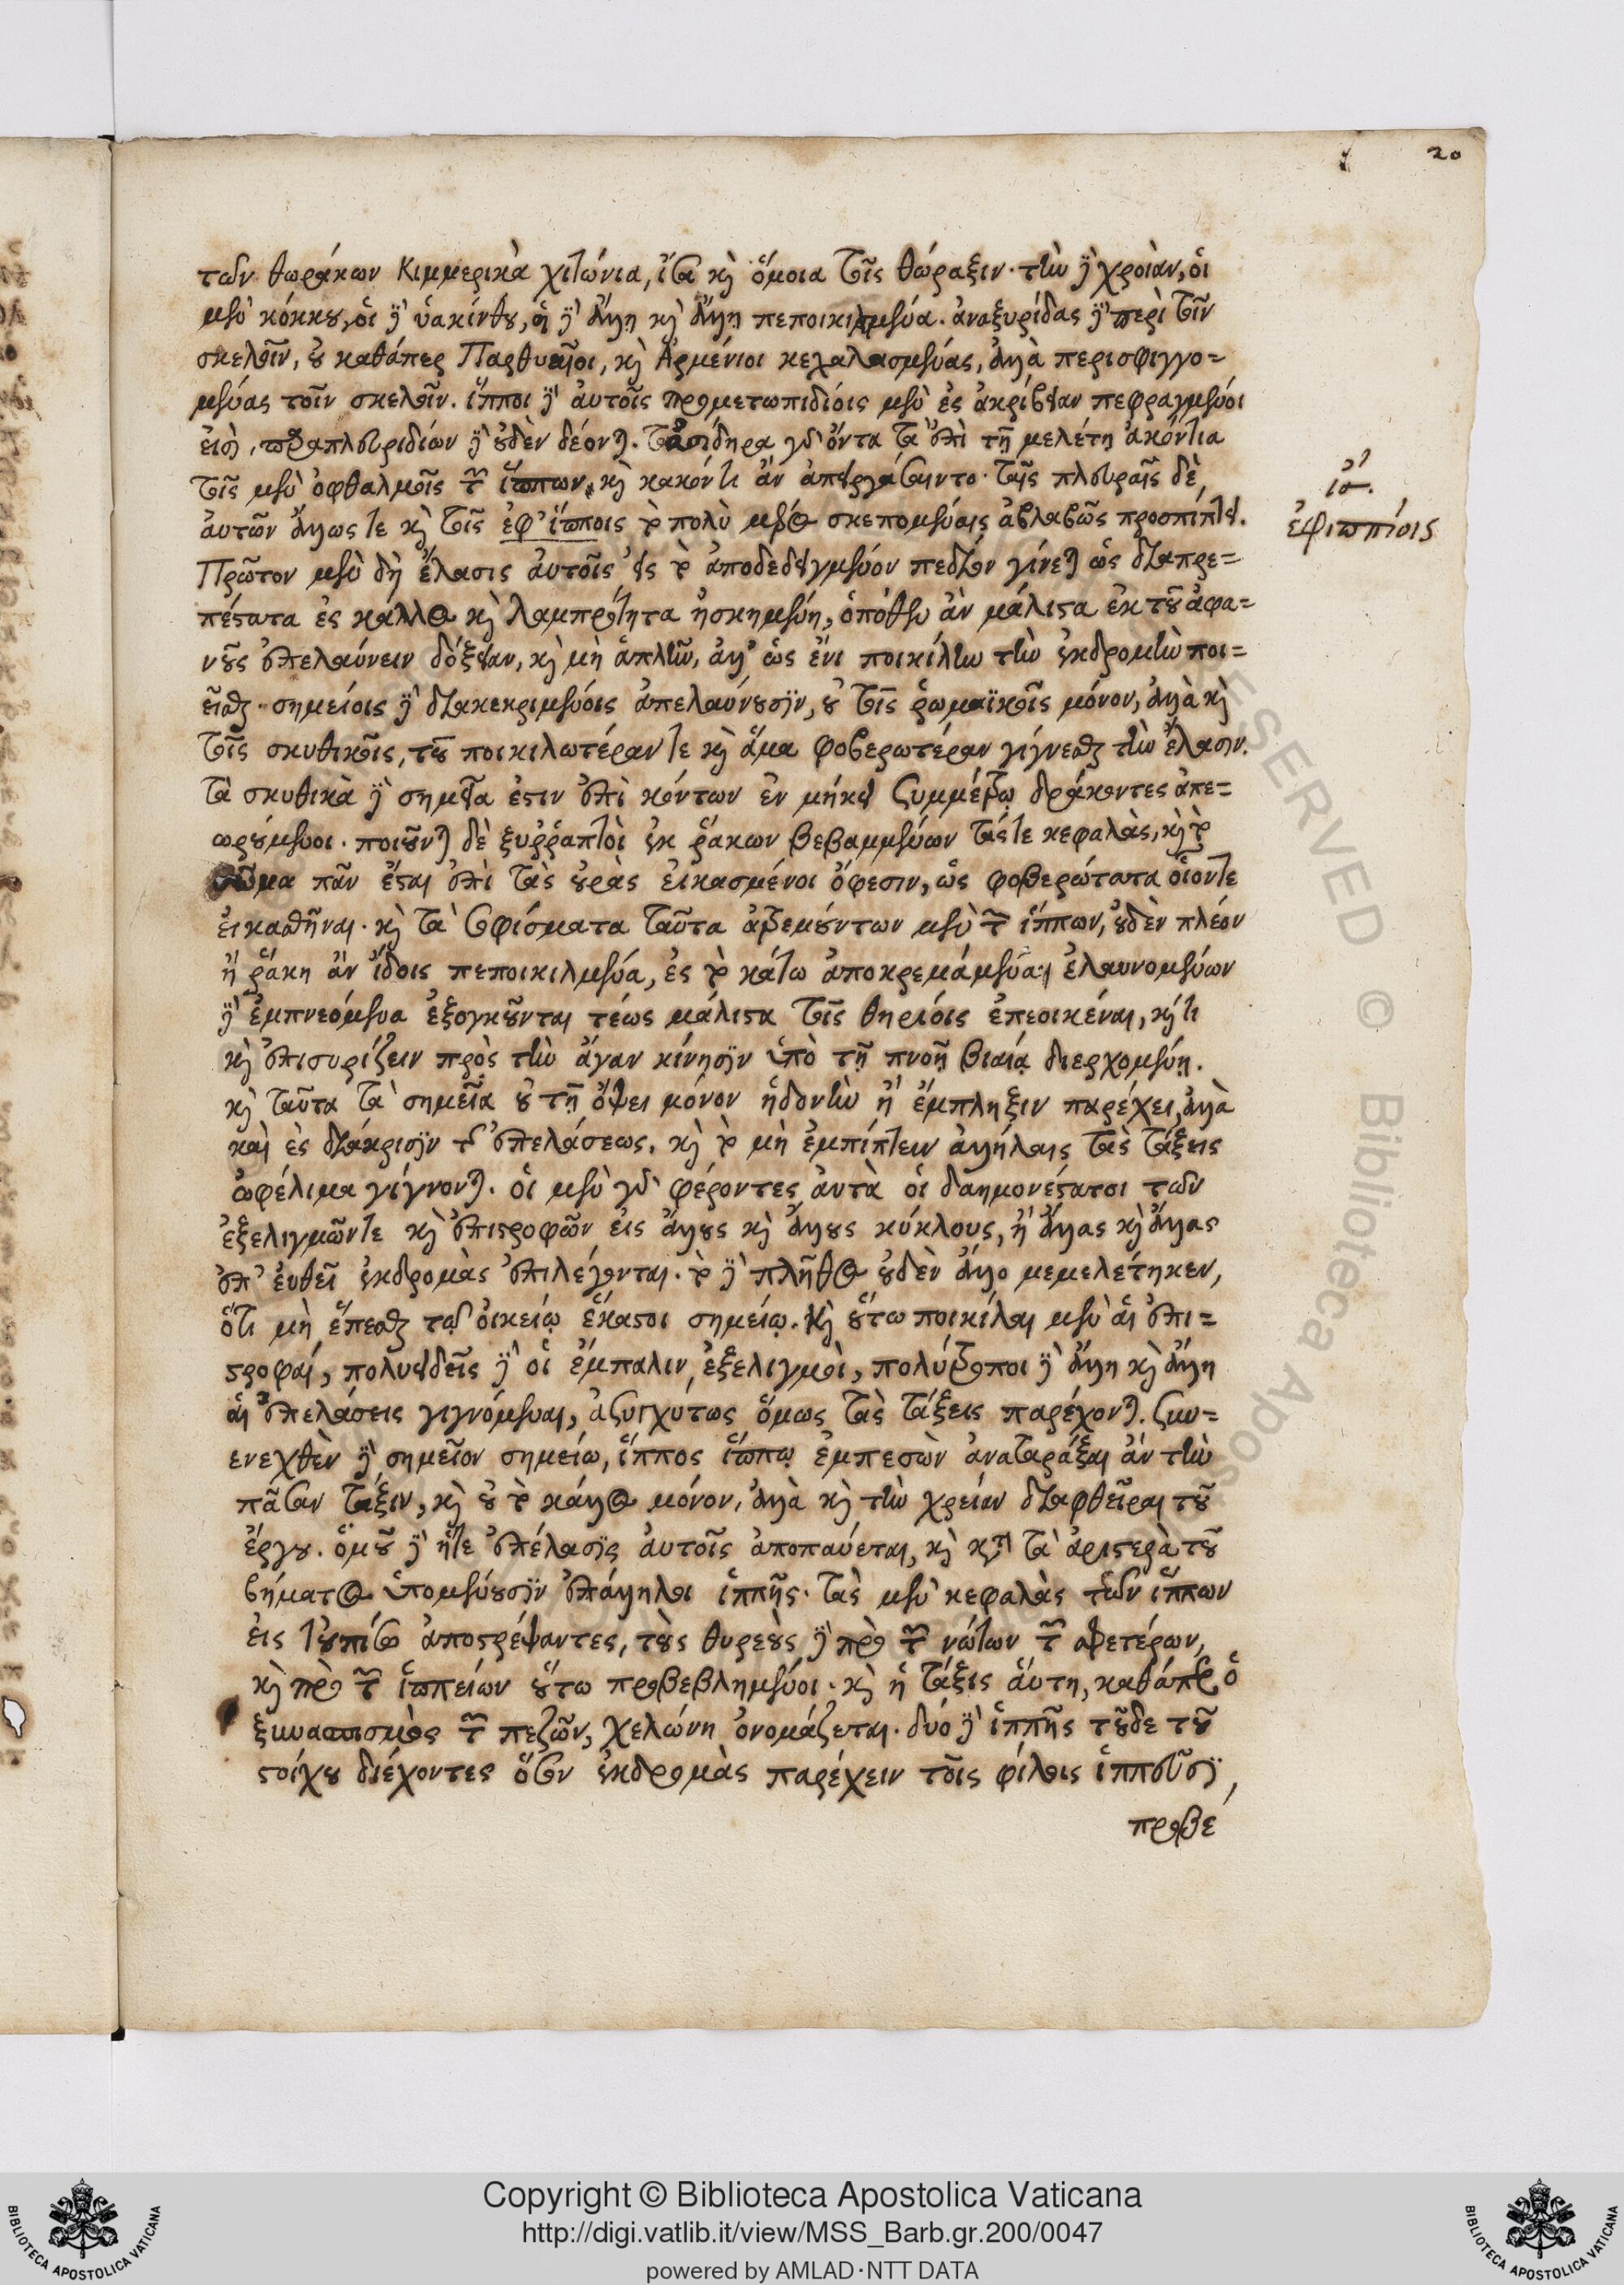 20
των θωράκων Κιμμερικὰ χιτώνια, ἴσα κὴ ὅμοια τοῖς θώραξιν. τὴν ἢ χροιὰν, οἱ
μὲν κόκκου, οἱ δὲ ὑακίνθου, ἡ δὲ ἄλλῃ κὴ ἄλλῃ πεποικιλμένα. ἀναξυρίδας δὲ περὶ τοῖν
σκελοῖν, οὐ καθάπερ Παρθυαῖοι, κὴ Ἀρμένιοι κεχαλασμένας, ἀλλὰ περισφιγγο=
μένας τοῖν σκελοῖν. ἵπποι δὲ αὐτοῖς προμετωπιδίοις μὲν ἐς ἀκρίβειαν πεφραγμένοι
εἰσὶ, παραπλευριδίων δὲ οὐδὲν δέονται. τὰ ἀσίδηρα γὰρ ὄντα τὰ ἐπὶ τῇ μελέτῃ ἀκόντια
τοῖς μὲν ὀφθαλμοῖς τῶν ἵππων, κὴ κακόν τι ἂν ἀπεργάσαιντο. ταῖς πλευραῖς δὲ,
αὐτῶν ἄλλως τε κὴ τοῖς ἐφ' ἵπποις τὸ πολὺ μέρος σκεπομέναις ἀβλαβῶς προσπίπτει.
ἴσ.
ἐφιππίοις
Πρῶτον μὲν δὴ ἔλασις αὐτοῖς εἰς τὸ ἀποδεδειγμένον πεδίον γίνεται ὡς διαπρε=
πέστατα ἐς κάλλος κὴ λαμπρότητα ἠσκημένη, ὁπόθεν ἂν μάλιστα ἐκ τοῦ ἀφα=
νοῦς ἐπελαύνειν δόξειαν, κὴ μὴ ἁπλῆν, ἀλλ' ὡς ἔνι ποικίλην τὴν ἐκδρομὴν ποι=
εῖσθαι. σημείοις δὲ διακεκριμένοις ἀπελαύνουσιν, οὐ τοῖς ῥωμαϊκοῖς μόνον, ἀλλὰ κὴ
τοῖς σκυθικοῖς, τοῦ ποικιλωτέραν τε κὴ ἅμα φοβερωτέραν γίγνεσθαι τὴν ἔλασιν.
Τὰ σκυθικὰ δὲ σημεῖα ἐστιν ἐπὶ κόντων ἐν μήκει ξυμμέτρῳ δράκοντες ἀπε=
ωρούμενοι. ποιοῦνται δὲ ξυῤῥαπτοὶ ἐκ ῥάκων βεβαμμένων τάς τε κεφαλὰς, κὴ τὸ
σῶμα πᾶν ἔσται ἐπὶ τὰς οὐρὰς εἰκασμένοι ὄφεσιν, ὡς φοβερώτατα οἷόν τε
εἰκασθῆναι. κὴ τὰ σοφίσματα ταῦτα ἀτρεμούντων μὲν τῶν ἵππων, οὐδὲν πλέον
ἢ ῥάκη ἂν ἴδοις πεποικιλμένα, ἐς τὸ κάτω ἀποκρεμάμενα· ἐλαυνομένων
δὲ ἐμπνεόμενα ἐξογκοῦνται τέως μάλιστα τοῖς θηρίοις ἐπεοικέναι, κή τι
κὴ ἐπισυρίζειν πρὸς τὴν ἄγαν κίνησιν ὑπὸ τῇ πνοῇ βιαίᾳ διερχομένῃ.
κὴ ταῦτα τὰ σημεῖα οὐ τῇ ὄψει μόνον ἡδονὴν ἢ ἔμπληξιν παρέχει, ἀλλὰ
καὶ ἐς διάκρισιν τῆς ἐπελάσεως, κὴ τὸ μὴ ἐμπίπτειν ἀλλήλαις τὰς τάξεις
ὠφέλιμα γίγνονται. οἱ μὲν γὰρ φέροντες αὐτὰ οἱ δαημονέστατοι τῶν
ἐξελιγμῶν τε κὴ ἐπιστροφῶν εἰς ἄλλους κὴ ἄλλους κύκλους, ἢ ἄλλας κὴ ἄλλας
ἐπ' εὐθεῖ ἐκδρομὰς ἐπιλέγονται. τὸ δὲ πλῆθος οὐδὲν ἄλλο μεμελέτηκεν,
ὅτι μὴ ἕπεσθαι τῷ οἰκείῳ ἕκαστοι σημείῳ. κὴ οὕτω ποικίλαι μὲν αἱ ἐπι=
στροφαί, πολυειδεῖς δὲ οἱ ἔμπαλιν ἐξελιγμοὶ, πολύτροποι δὲ ἄλλη κὴ ἄλλη
αἱ ἐπελάσεις γιγνόμεναι, ἀξυγχύτως ὅμως τὰς τάξεις παρέχονται. ξυν=
ενεχθὲν δὲ σημεῖον σημείω, ἵππος ἵππῳ ἐμπεσὼν ἀναταράξαι ἂν τὴν
πᾶσαν τάξιν, κὴ οὐ τὸ κάλλος μόνον, ἀλλὰ κὴ τὴν χρείαν διαφθεῖραι τοῦ
ἔργου. ὁμοῦ δὲ ἥτε ἐπέλασις αὐτοῖς ἀποπαύεται, κὴ κατὰ τὰ ἀριστερὰ τοῦ
βήματος ὑπομένουσιν ἐπάλληλοι ἱππῆς. τὰς μὲν κεφαλὰς τῶν ἵππων
εἰς τοὐπίσω ἀποστρέψαντες, τοὺς θυρεοὺς δὲ πρὸ τῶν νώτων τῶν σφετέρων,
κὴ πρὸ τῶν ἱππείων οὕτω προβεβλημένοι. κὴ ἡ τάξις αὕτη, καθάπερ ὁ
ξυνασπισμὸς τῶν πεζῶν, χελώνη ὀνομάζεται. δύο δὲ ἱππῆς τοῦδε τοῦ
στοίχου διέχοντες ὅσον ἐκδρομὰς παρέχειν τοῖς φίλοις ἱππεῦσι,
προβε
RESERVED © Biblioteca Apos
Copyright © Biblioteca Apostolica Vaticana
http://digi.vatlib.it/view/MSS_Barb.gr.200/0047
powered by AMLAD·NTT DATA
BIBLIOTECA APOSTOLICA VATICANA
BIBLIOTECA APOSTOLICA VATICANA